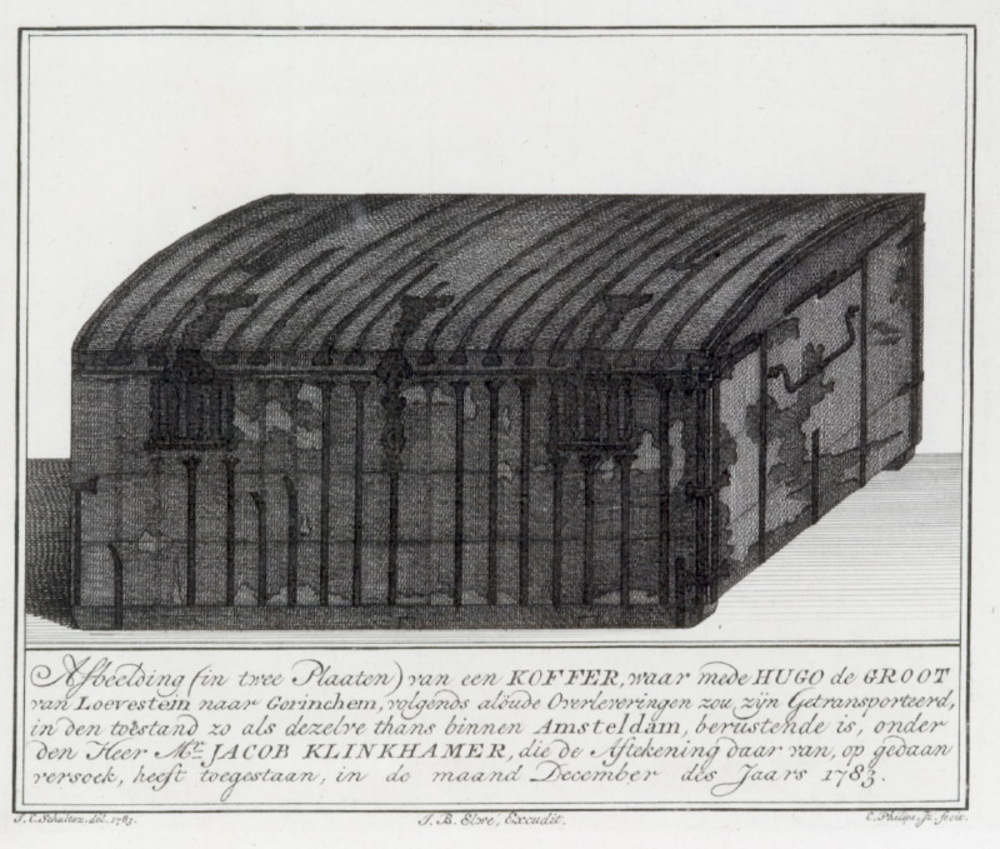 Afbeelding (in twee Plaaten) van een KOFFER, waar mede HUGO de GROOT
van Loevestein naar Gorinchem, volgends alöude Overleveringen zou zijn Getransporteerd,
in den toestand zo als dezelve thans binnen Amsteldam, berustende is, onder
den Heer Mr. JACOB KLINKHAMER, die de Aftekening daar van, op gedaan
versoek, heeft toegestaan, in de maand December des Jaars 1783.
J. C. Schultsz, del. 1783.
J. B. Elwe, Excudit.
C. Philips, Jz. fecit.